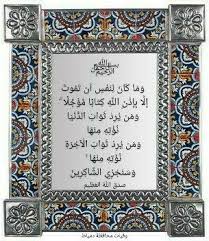 بسم الله الرحمن الرحيم
وَمَا كَانَ لِنَفْسٍ أَن تَمُوتَ
إِلَّا بِإِذْنِ اللَّهِ كِتَابًا مُّؤَجَّلًا
وَمَن يُرِدْ ثَوَابَ الدُّنْيَا
نُؤْتِهِ مِنْهَا
وَمَن يُرِدْ ثَوَابَ الْآخِرَةِ
نُؤْتِهِ مِنْهَا
وَسَنَجْزِي الشَّاكِرِينَ
صدق الله العظيم
وفيات محافظة دمياط